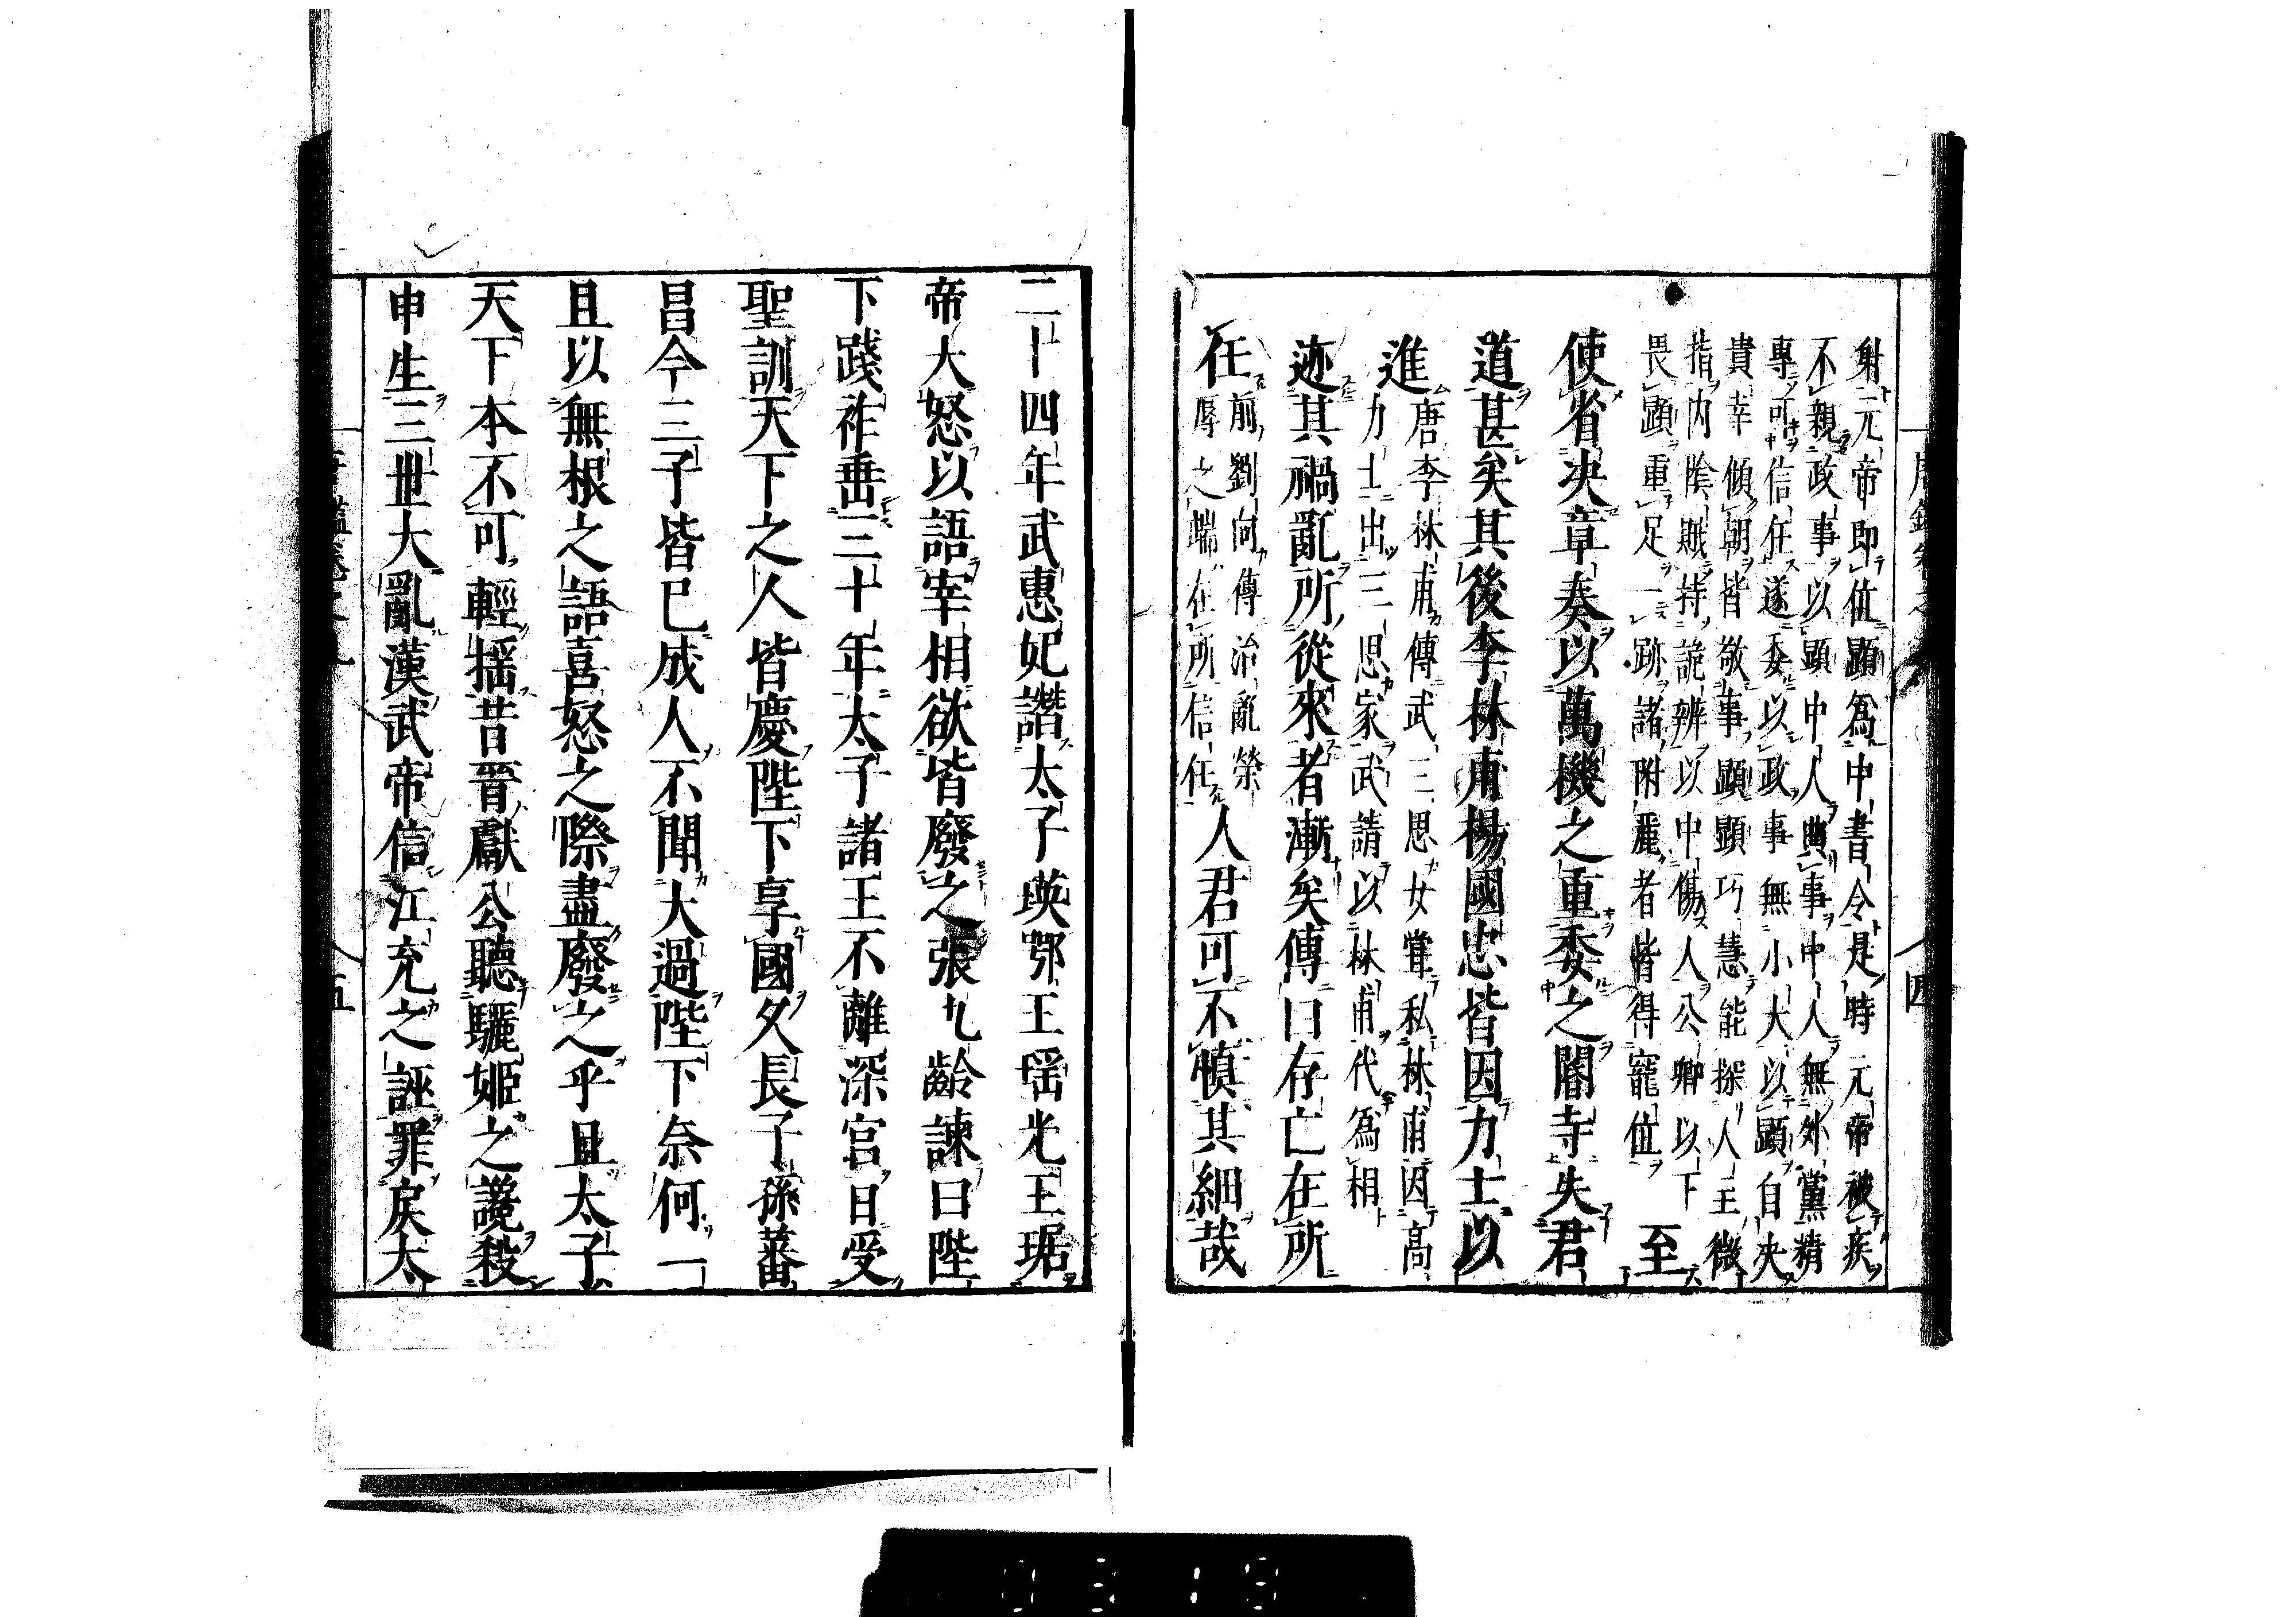 唐鑑卷之九
四
射元帝即位顯為中書令是時元帝被疾
不親政事以顯中人典事中人無外黨精
專可信任遂委以政事無小大以顯自决
貴幸傾朝皆敬事顯顯巧慧能探人主微
指内陰賊持詭辨以中傷人公卿以下
畏顯重足一跡諸附麗者皆得寵位
至
使省决章奏以萬機之重委之閽寺失君
道甚矣其後李林甫楊國忠皆因力士以
進
唐李林甫傳武三思女嘗私林甫因高
力士出三思家武請以林甫代為相
迹其禍亂所從來者漸矣傳曰存亡在所
任
前劉向傳治亂榮
辱之端在所信任
人君可不慎其細哉
二十四年武惠妃譖太子瑛鄂王瑶光王琚
帝大怒以語宰相欲皆廢之張九齡諫曰陛
下踐祚垂三十年太子諸王不離深宫日受
聖訓天下之人皆慶陛下享國久長子孫蕃
昌今三子皆已成人不聞大過陛下奈何一
且以無根之語喜怒之際盡廢之乎且太子
天下本不可輕揺昔晉獻公聽驪姬之讒殺
申生三世大亂漢武帝信江充之誣罪戾太
五
0319